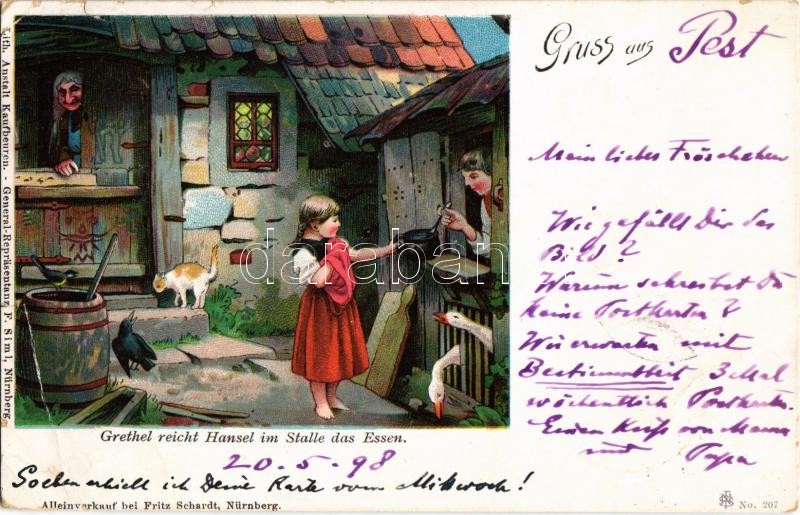 Lith. Anstalt Kaufbeuren. - General-Repräsentanz F. Siml, Nürnberg.
Gruss aus Pest
Mein liebes Fröschchen
Wie gefällt Dir das
Bild?
Warum schreibst Du
keine Postkarten?
Wir erwarten mit
Bestimmtheit 3 Mal
wöchentlich Postkarte.
Einen Kuß von Mama
und Papa
darabanth
Grethel reicht Hansel im Stalle das Essen.
20.5.98
Soeben erhielt ich Deine Karte vom Mittwoch!
Alleinverkauf bei Fritz Schardt, Nürnberg.
No. 207